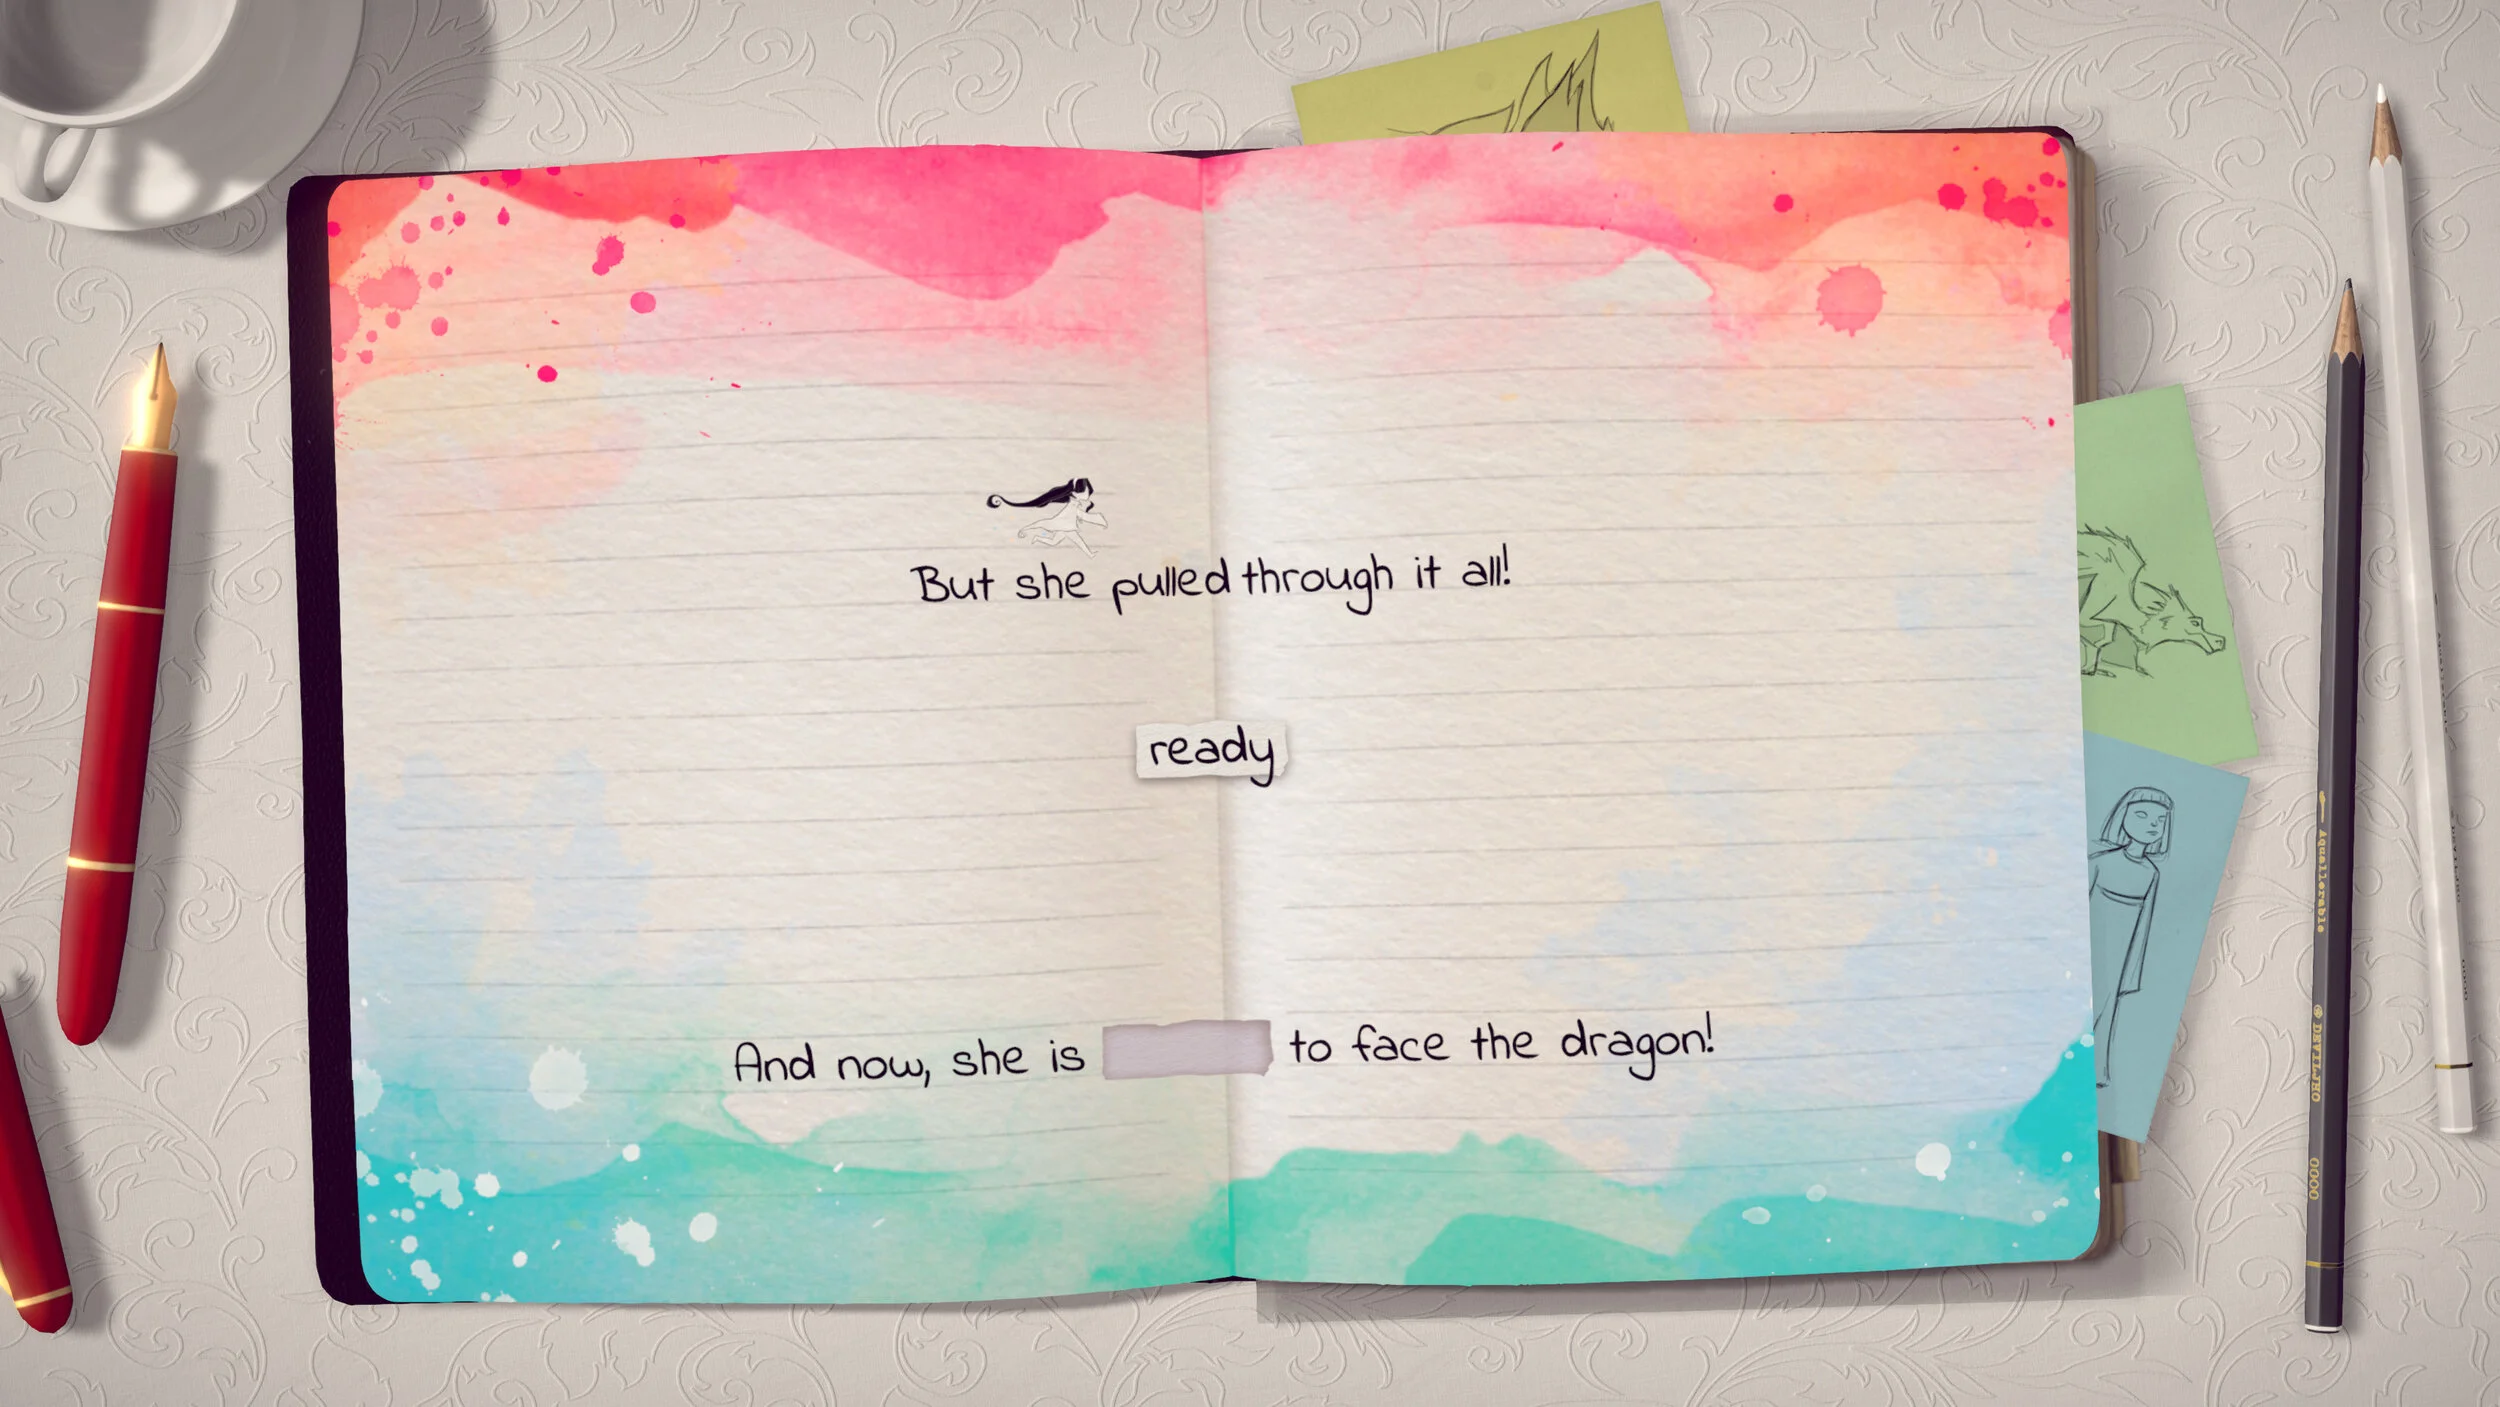 But she pulled through it all!
ready
And now, she is to face the dragon!
Aquallerable
@ DEVILJHO
0000